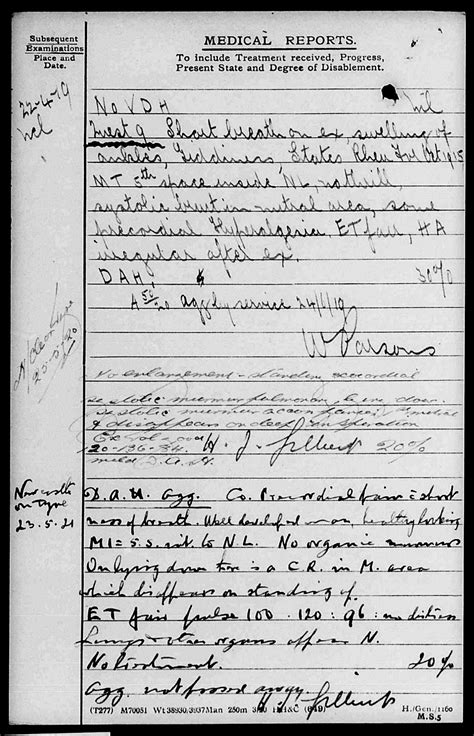 Subsequent
Examinations
Place and
Date.
MEDICAL REPORTS.
To include Treatment received, Progress,
Present State and Degree of Disablement.
22-4-19
Ncl
No VDH Nil
Short breath on ex, swelling of
ankles, Giddiness, States Rheu Fev Oct 1915
5th space inside NL, no thrill,
systolic bruit in mitral area, some
precordial Hyperalgesia. ET fair, HA
irregular after ex.
DAH. 30%
Agg by service 24/1/19
W Parsons
20
No enlargement - standing
systolic murmur pulmonary
systolic murmur
& disappears on deep inspiration
Ex Tol good
120-136-84.
mild D.A.H. H. J. Gilbert 20%
Newcastle
on Tyne
23.5.21
D.A.H. Agg. Co. Precordial pain & short
ness of breath. Well developed man, healthy looking
MI = 5.S. int. to N.L. No organic murmurs
On lying down there is a C.R. in M. area
which disappears on standing up.
ET fair pulse 100 . 120 : 96 : no distress
Lungs & other organs appear N.
No treatment. 20%
Agg. not passed away.
H. J. Gilbert
(T277) M70051 Wt 38930/3937Man 250m 3/20 HH&C (649) H./Gen./1160
M.S.5